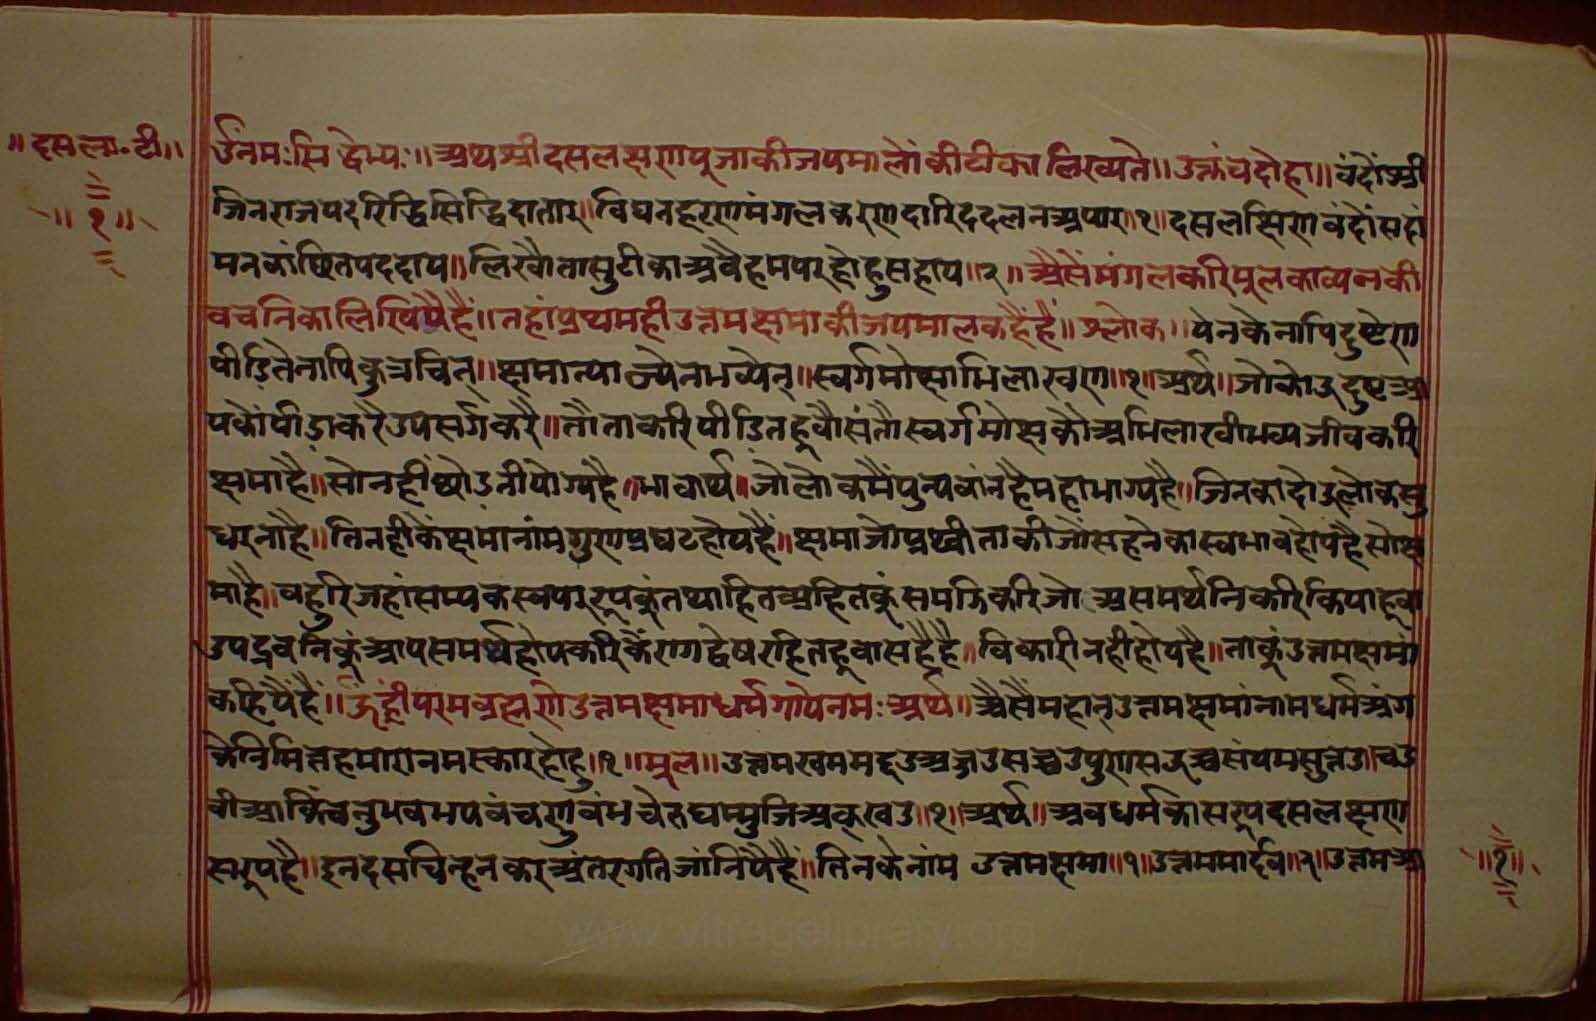 ॥दसला॰टी॥
॥१॥
ॐनमःसिद्धेभ्यः॥अथश्रीदसलक्षणपूजाकीजयमालोंकीटीकालिख्यते॥उक्तंचदोहा॥वंदौंश्री
जिनराजपदरिद्धिसिद्धिदातार॥विघनहरणमंगलकरणदारिददलनअपार॥१॥दसलक्षिणवंदौंसदां
मनवांछितपददाय॥लिखौतासुटीकाअवैहमपरहोहुसहाय॥२॥अैसैंमंगलकरिमूलकाव्यनकी
वचनिकालिखियैहैं॥तहांप्रथमहीउत्तमक्षमाकीजयमालकहैंहैं॥श्लोक॥येनकेनापिदुष्टेण
पीडितेनापिकुत्रचित्॥क्षमात्याज्येनभव्येन्॥स्वर्गमोक्षाभिलाखण॥१॥अर्थ॥जोकोउदुष्टआ
पकौंपीडाकरेउपसर्गकरै॥तौताकरिपीडितहूवौसंतौस्वर्गमोक्षकौअभिलाखीभव्यजीवकरि
क्षमाहै॥सोनहींछोडनीयोग्यहै॥भावार्थ॥जोलोकमैंपुन्यवांनहैमहाभाग्यहै॥जिनकादोउलोकसु
धरनाहै॥तिनहीकैंक्षमांनांमगुणप्रघटहोयहैं॥क्षमाजोप्रथ्वीताकीजौंसहनेकास्वभावहोयहैसोक्ष
माहै॥वहुरिजहांसम्यकस्वपररूपकुंतथाहितअहितकुंसमझिकरिजोअसमर्थनिकरिकियाहूवा
उपद्रवनिकुंआपसमर्थहोयकरिकैंरागद्वेषरहितहूवासहैहै॥विकारीनहीहोयहै॥ताकुंउत्तमक्षमां
कहियैहैं॥ॐह्रींपरमब्रह्मणेउत्तमक्षमाधर्मगायेनमःअर्थ॥अैसैंमहानउत्तमक्षमांनामधर्मअंग
केनिमित्तहमारानमस्कारहोहु॥१॥मूल॥उत्तमखममद्दउअज्जउसच्चउपुणसउच्चसंयमसुत्तउ॥चउ
वीआकिंचनुभवभयवंचणुवंभचेरुधम्मुजिअक्खउ॥१॥अर्थ॥अवधर्मकासरूपदसलक्षण
सरूपहै॥इनदसचिन्हनकरअंतरगतिजांनियैहैं॥तिनकेनांम उत्तमक्षमा॥१॥उत्तममार्दव॥२॥उत्तमआ
॥१॥
www.vitragelibrary.org